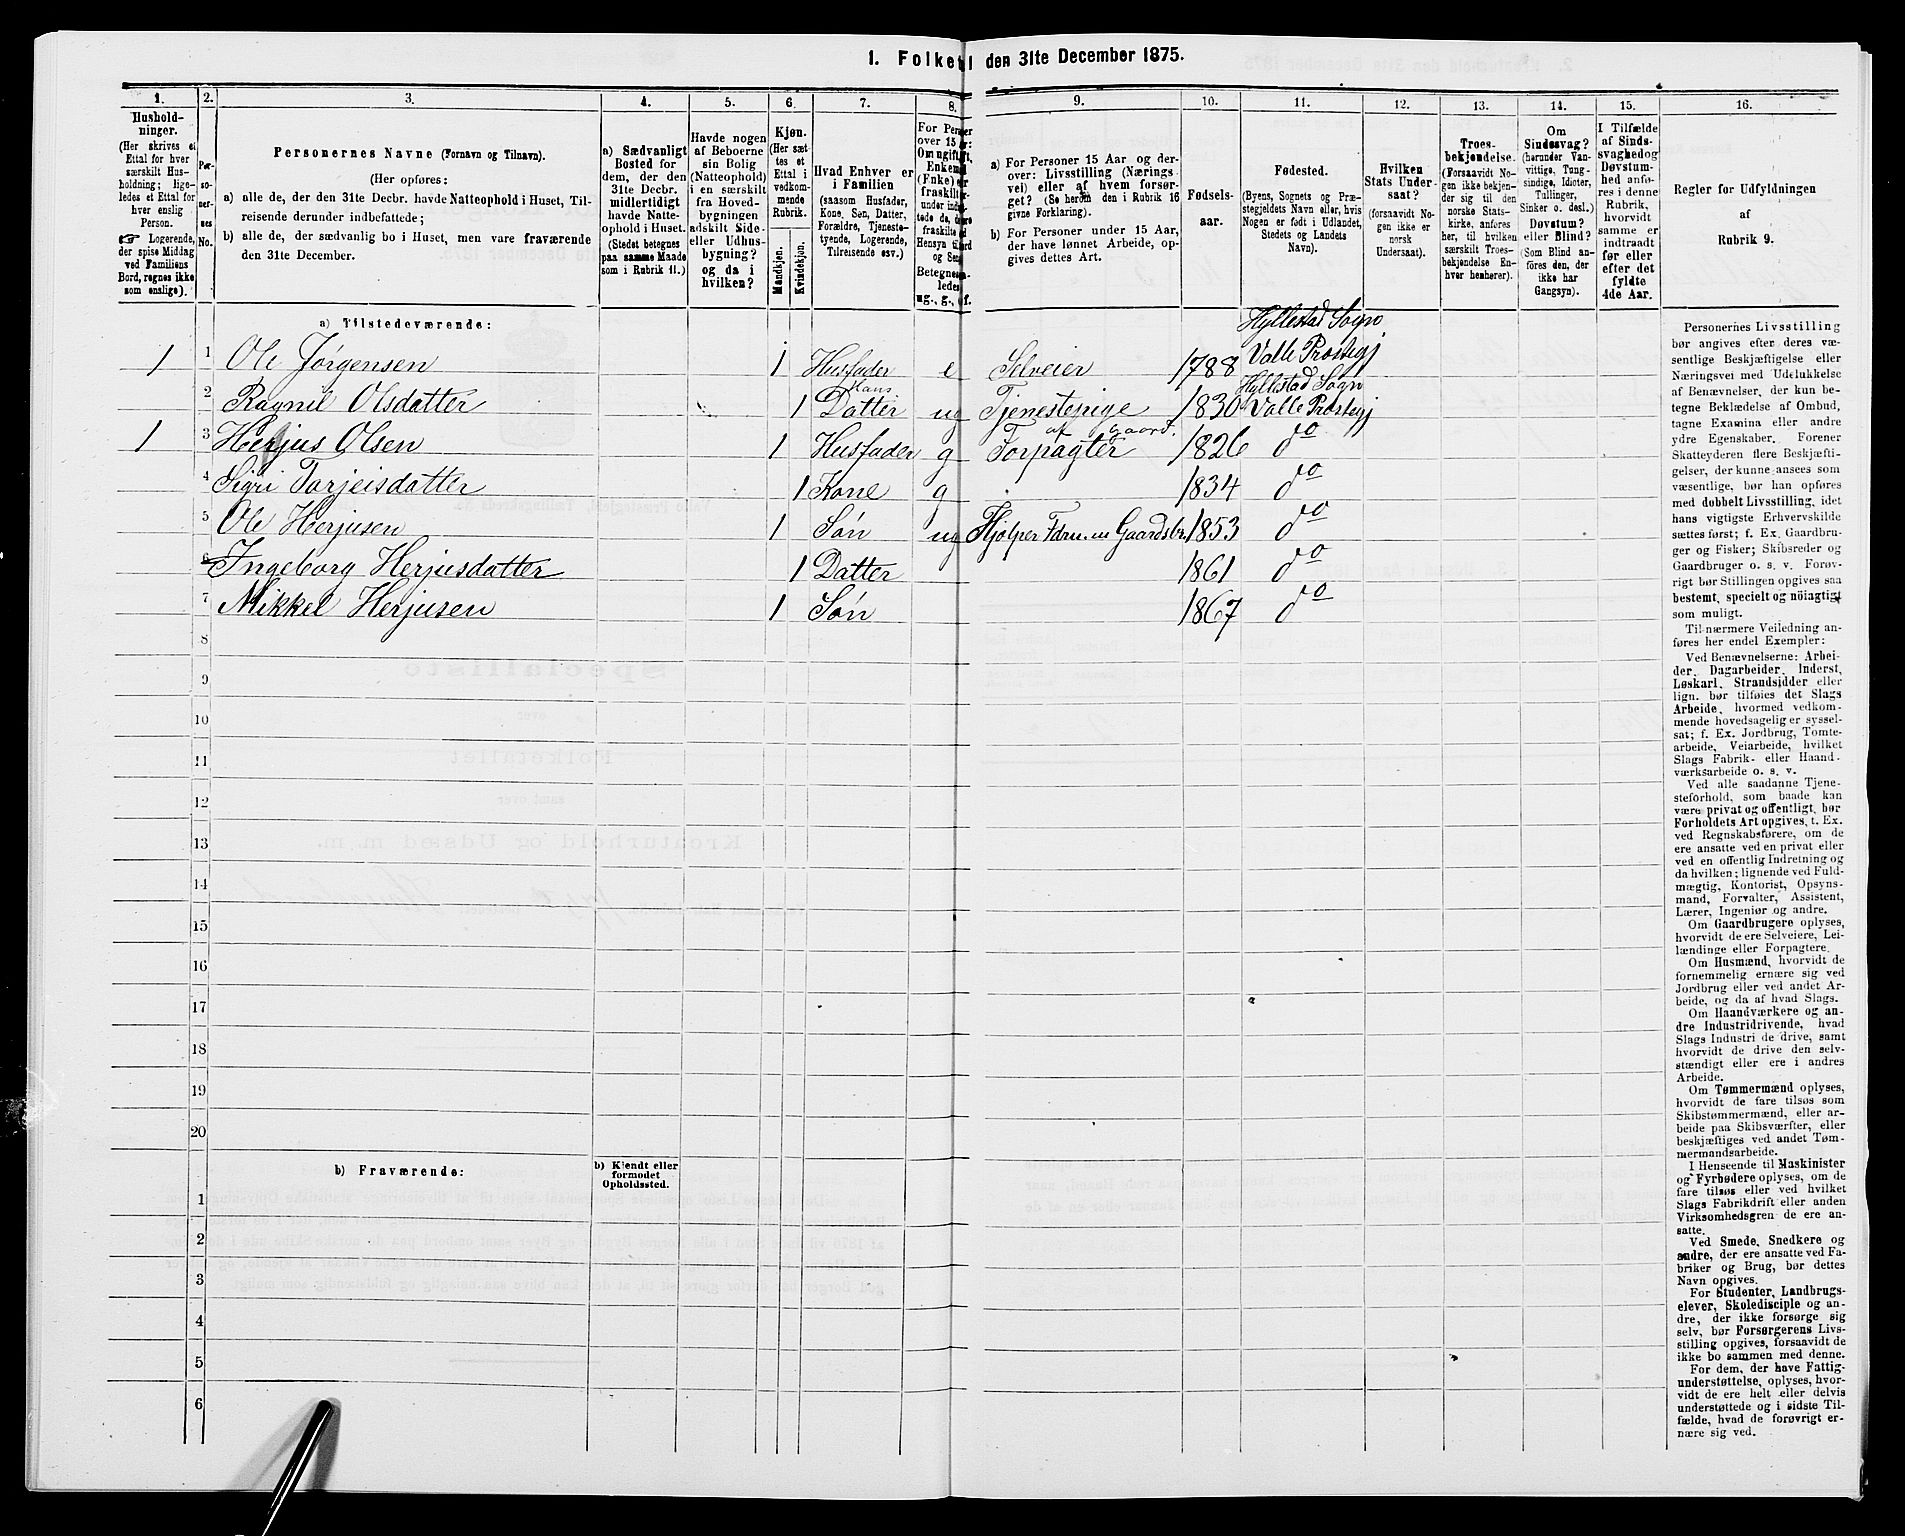 1. Folketal den 31te December 1875.
1. 2. 3. 4. 5. 6. 7. 8. 9. 10. 11. 12. 13. 14. 15. 16.
Hushold-
ninger.
(Her skrives et
Ettal for hver
særskilt Hus-
holdning; lige-
ledes et Ettal for
hver enslig
Person.
☞ Logerende,
der spise Middag
ved Familiens
Bord, regnes ikke
som enslige).
Per-
so-
ner-
nes
No.
Personernes Navne (Fornavn og Tilnavn).
(Her opføres:
a) alle de, der den 31te Decbr. havde Natteophold i Huset, Til-
reisende derunder indbefattede;
b) alle de, der sædvanlig bo i Huset, men vare fraværende
den 31te December.
a) Sædvanligt
Bosted for
dem, der den
31te Decbr.
midlertidigt
havde Natte-
ophold i Huset.
(Stedet betegnes
paa samme Maade
som i Rubrik 11.)
Havde nogen
af Beboerne
sin Bolig
(Natteophold)
i en særskilt
fra Hoved-
bygningen
adskilt Side-
eller Udhus-
bygning?
og da i
hvilken?
Kjøn.
(Her sæt-
tes et
Ettal i
vedkom-
mende
Rubrik.
Mandkjøn.
Kvindekjøn.
Hvad Enhver er
i Familien
(saasom Husfader,
Kone, Søn, Datter,
Forældre, Tjeneste-
tyende, Logerende,
Tilreisende osv.).
For Personer
over 15 Aar:
Om ugift,
Enkemand
(Enke) eller
fraskilt
Betegnes saa-
ledes:
ug., g., e., f.
a) For Personer 15 Aar og der-
over: Livsstilling (Nærings-
vei) eller af hvem forsør-
get? (Se herom den i Rubrik 16
givne Forklaring).
b) For Personer under 15 Aar,
der have lønnet Arbeide, op-
gives dettes Art.
Fødsels-
aar.
Fødested.
(Byens, Sognets og Præ-
stegjeldets Navn eller, hvis
Nogen er født i Udlandet,
Stedets og Landets
Navn).
Hvilken
Stats Under-
saat?
(forsaavidt No-
gen ikke er
norsk
Undersaat).
Troes-
bekjendelse.
(Forsaavidt No-
gen ikke bekjen-
der sig til den
norske Stats-
kirke, anføres
her, til hvilken
særskilt Troes-
bekjendelse En-
hver henhører).
Om
Sindssvag?
(herunder Van-
vittige, Tung-
sindige, Idioter,
Tullinger,
Sinker o. desl.)
Døvstum?
eller Blind?
(Som Blind an-
føres den, der
ikke har
Gangsyn).
I Tilfælde
af Sinds-
svaghed og
Døvstum-
hed anfø-
res i denne
Rubrik,
hvorvidt
samme er
indtraadt
før eller
efter det
fyldte
4de Aar.
Regler for Udfyldningen
af
Rubrik 9.
a) Tilstedeværende:
Hyllestad Sogn
1 1 Ole Jørgensen 1 Husfader e Selveier 1788 Valle Præstegj
Hans Hyllestad Sogn
2 Ragnil Olsdatter 1 Datter ug Tjenestepige 1830 Valle Præstegj
af Gaard.
1 3 Herjus Olsen 1 Husfader g Forpagter 1826 do
4 Sigri Tarjeisdatter 1 Kone g 1834 do
5 Ole Herjusen 1 Søn ug Hjælper Gaardsbr. 1853 do
6 Ingeborg Herjusdatter 1 Datter 1861 do
7 Mikkel Herjusen 1 Søn 1867 do
8
9
10
11
12
13
14
15
16
17
18
19
20
b) Fraværende:
b) Kjendt eller
formodet
Opholdssted.
1
2
3
4
5
6
Personernes Livsstilling
bør angives efter deres væ-
sentlige Beskjæftigelse eller
Næringsvei med Udelukkelse
af Benævnelser, der kun be-
tegne Beklædelse af Ombud,
tagne Examina eller andre
ydre Egenskaber. Forener
Skatteyderen flere Beskjæfti-
gelser, der kunne ansees som
væsentlige, bør han opføres
med dobbelt Livsstilling, idet
hans vigtigste Erhvervskilde
sættes først; f. Ex. Gaardbru-
ger og Fisker; Skibsreder og
Gaardbruger o. s. v. Forøv-
rigt bør Stillingen opgives saa
bestemt, specielt og nöiagtigt
som muligt.
Til nærmere Veiledning an-
føres her endel Exempler:
Ved Benævnelserne: Arbei-
der, Dagarbeider, Inderst,
Løskarl, Strandsidder eller
lign. bør tilføies det Slags
Arbeide, hvormed vedkom-
mende hovedsagelig er syssel-
sat; f. Ex. Jordbrug, Tomte-
arbeide, Veiarbeide, hvilket
Slags Fabrik- eller Haand-
værksarbeide o. s. v.
Ved alle saadanne Tjene-
steforhold, som baade kan
være privat og offentligt, bør
Forholdets Art opgives, t. Ex.
ved Regnskabsførere, om de
ere ansatte ved en privat eller
ved en offentlig Indretning og
da hvilken; lignende ved Fuld-
mægtig, Kontorist, Opsyns-
mand, Forvalter, Assistent,
Lærer, Ingeniør og andre.
Om Gaardbrugere oplyses,
hvorvidt de ere Selveiere, Lei-
lændinge eller Forpagtere.
Om Husmænd, hvorvidt de
fornemmelig ernære sig ved
Jordbrug eller ved andet Ar-
beide, og da af hvad Slags.
Om Haandværkere og an-
dre Industridrivende, hvad
Slags Industri de drive, samt
hvorvidt de drive den selv-
stændigt eller ere i andres
Arbeide.
Om Tømmermænd oplyses,
hvorvidt de fare tilsøs som
Skibstømmermænd, eller ar-
beide paa Skibsværfter, eller
beskjæftiges ved andet Tøm-
mermandsarbeide.
I Henseende til Maskinister
og Fyrbødere oplyses, om de
fare tilsøs eller ved hvilket
Slags Fabrikdrift eller anden
Virksomhedsgren de ere an-
satte.
Ved Smede, Snedkere og
andre, der ere ansatte ved Fa-
briker og Brug, bør dettes
Navn opgives.
For Studenter, Landbrugs-
elever, Skoledisciple og an-
dre, der ikke forsørge sig
selv, bør Forsørgerens Livs-
stilling opgives, forsaavidt de
ikke bo sammen med denne.
For dem, der have Fattig-
understøttelse, oplyses, hvor-
vidt de ere helt eller delvis
understøttede og i sidste Til-
fælde, hvad de forøvrigt er-
nære sig ved.